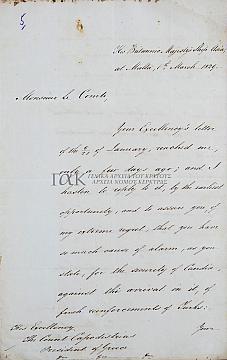 5,
His Britannic Majesty's Ship Asia,
at Malta, 1st March 1829.
Monsieur le Comte,
Your Excellency's letter
of the 9/21 of January, reached me,
a few days ago; and I
ΓΕΝΙΚΑ ΑΡΧΕΙΑ ΤΟΥ ΚΡΑΤΟΥΣ
ΑΡΧΕΙΑ ΝΟΜΟΥ ΚΕΡΚΥΡΑΣ
hasten to reply to it, by the earliest
opportunity, and to assure you of
my extreme regret, that you have
so much cause of alarm, as you
state, for the security of Candia,
against the arrival in it, of
fresh reinforcements of Turks.
His Excellency
The Count Capodistrias
President of Greece